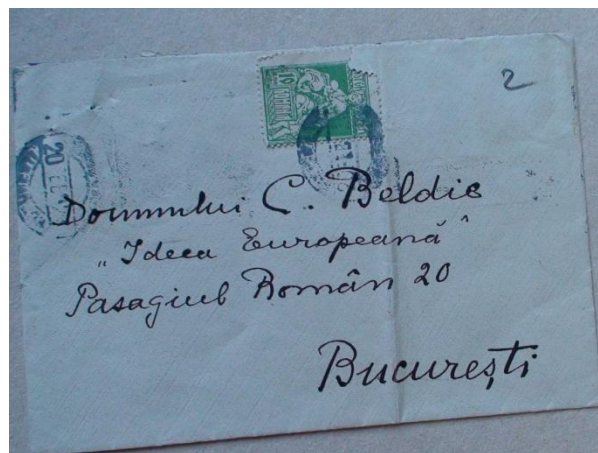 2
Domnului C. Beldie
„Ideea Europeană"
Pasagiul Român 20
București
20